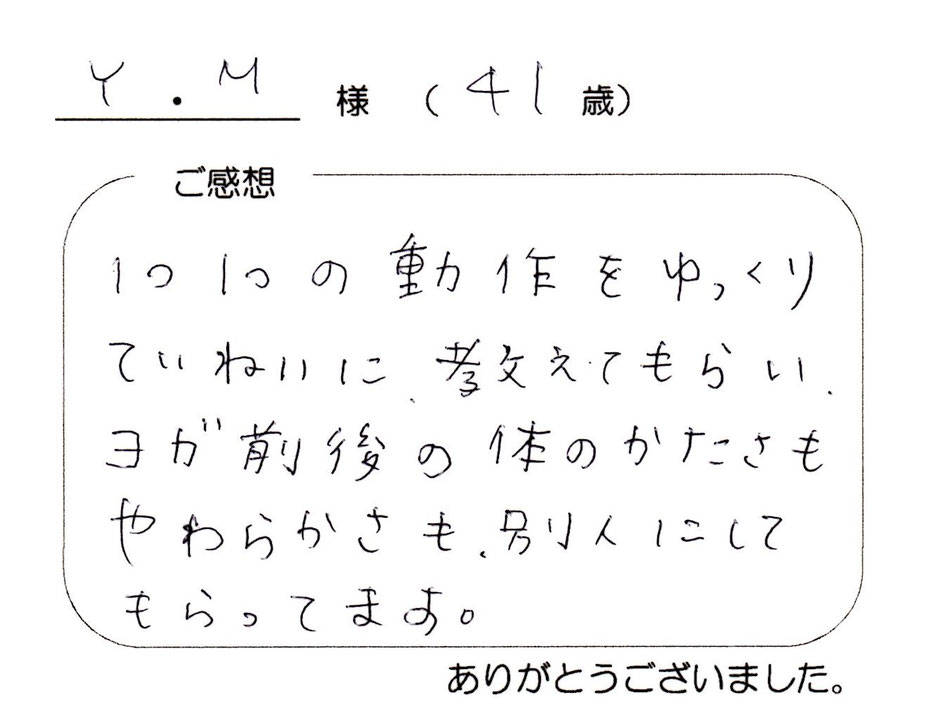 Y.M 様 (41歳)
ご感想
1つ1つの動作をゆっくり
ていねいに、教えてもらい、
ヨガ前後の体のかたさも
やわらかさも、別人にして
もらってます。
ありがとうございました。